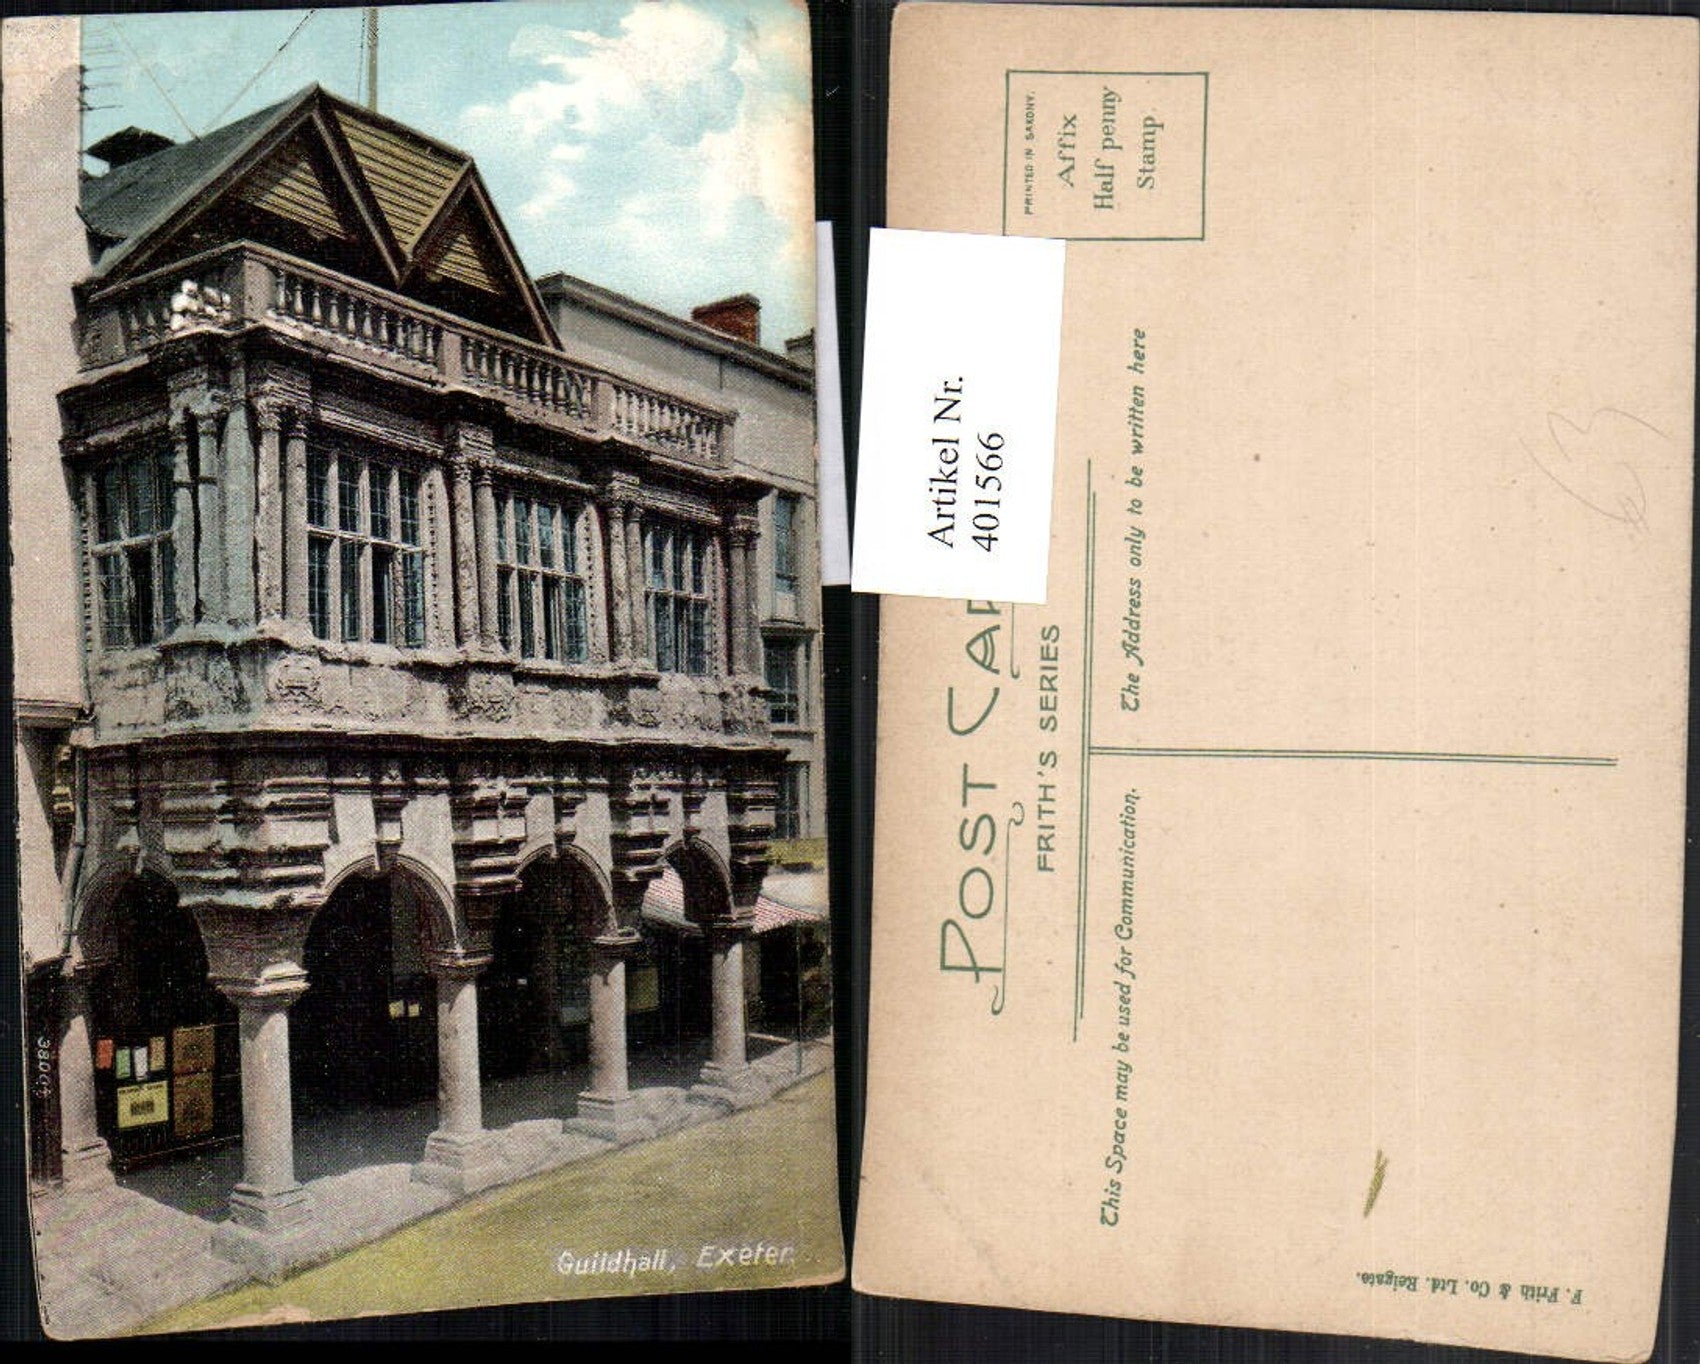 Guildhall, Exeter.
PRINTED IN SAXONY.
Affix
Half penny
Stamp.
Artikel Nr.
401566
POST CAR
FRITH'S SERIES
This Space may be used for Communication.
The Address only to be written here
F. Frith & Co. Ltd. Reigate.